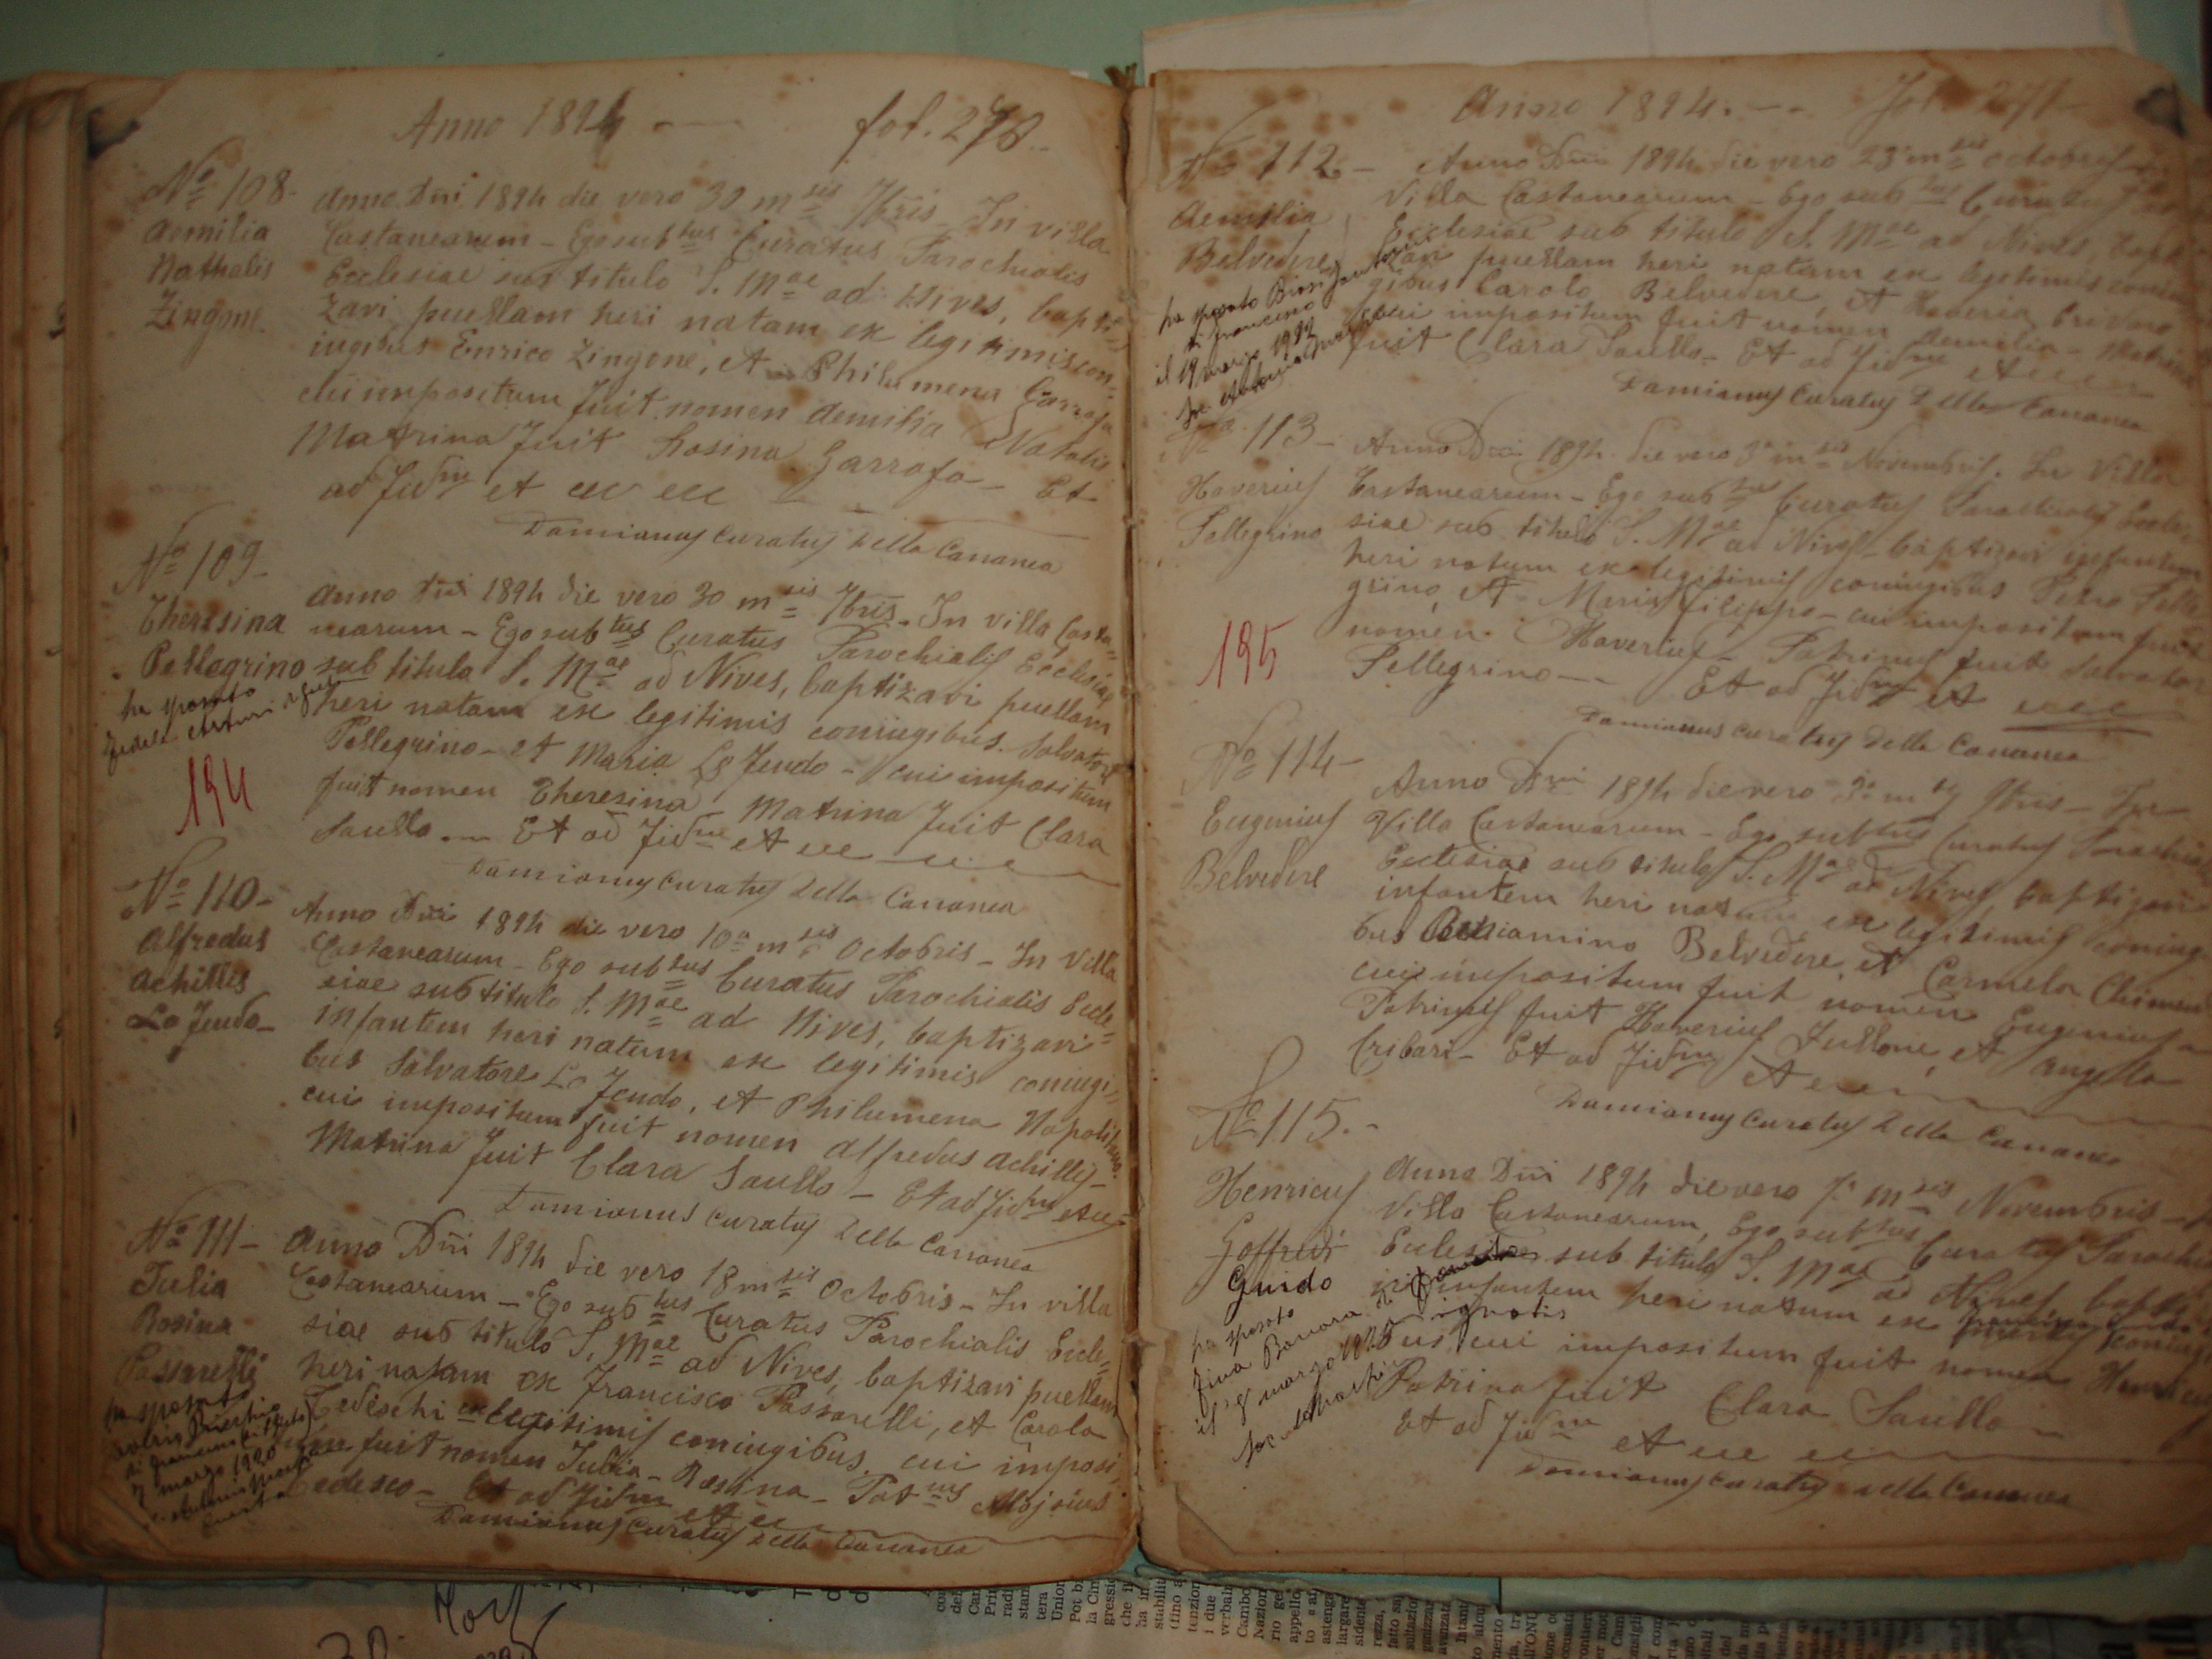 Anno 1894 — fol. 270.
Nº 108.
Aemilia
Nathalis
Zingone.
Anno Dñi 1894 die vero 30 m sis 7bris. In villa
Castanearum - Ego sub tus Curatus Parochialis
Ecclesiae sub titulo S. Mae ad Nives, bapti=
zavi puellam heri natam ex legitimis con=
iugibus Enrico Zingone, et Philumena Garrafa
cui impositum fuit nomen Aemilia Natalis
Matrina fuit Rosina Garrafa - Et
ad fidm et
Damianus Curatus Della Cananea
Nº 109.
Theresina
Pellegrino
ha sposato
194
Anno Dñi 1894 die vero 30 m sis 7bris. In villa Casta=
nearum - Ego sub tus Curatus Parochialis Ecclesiae
sub titulo S. Mae ad Nives, baptizavi puellam
heri natam ex legitimis coniugibus Salvatore
Pellegrino - et Maria Lo Feudo - cui impositum
fuit nomen Theresina - Matrina fuit Clara
Saullo. - Et ad fidm et
Damianus Curatus Della Cananea
Nº 110 -
Alfredus
Achillis
Lo Feudo -
Anno Dñi 1894 die vero 10a m sis Octobris - In Villa
Castanearum - Ego sub tus Curatus Parochialis Eccle=
siae sub titulo S. Mae ad Nives, baptizavi=
infantem heri natum ex legitimis coniugi=
bus Salvatore Lo Feudo, et Philumena Napolitano
cui impositum fuit nomen Alfredus Achillis -
Matrina fuit Clara Saullo - Et ad fidm
Damianus Curatus Della Cananea
Nº 111 -
Julia
Rosina
Passarelli
ha sposato
7 marzo 1920
Anno Dñi 1894 die vero 18 m sis Octobris - In villa
Castanearum - Ego sub tus Curatus Parochialis Eccle=
siae sub titulo S. Mae ad Nives, baptizavi puellam
heri natam ex Francisco Passarelli, et Carola
Tedeschi ex legitimis coniugibus, cui imposi
fuit nomen Julia - Rosina - Pat nus Alojsius
Tedesco - Et ad fidm et
Damianus Curatus Della Cananea
Anno 1894. - - fol. 271
Nº 112 -
Aemilia
Belvedere
ha sposato
di Francesco
il 19 marzo 1922
Anno Dñi 1894 die vero 23 m sis Octobris -
Villa Castanearum - Ego sub tus Curatus
Ecclesiae sub titulo S. Mae ad Nives,
puellam heri natam ex legitimis coniu
gibus Carolo Belvedere, et Haveria
cui impositum fuit nomen Aemilia - Matrina
fuit Clara Saullo - Et ad fidm et
Damianus Curatus Della Cananea
Nº 113 -
Haverius
Pellegrino
195
Anno Dñi 1894 die vero 3a m sis Novembris. In Villa
Castanearum - Ego sub tus Curatus Parochialis Eccle=
siae sub titulo S. Mae ad Nives - baptizavi infantem
heri natum ex legitimis coniugibus Petro Pelle
grino, et - Maria Filippo - cui impositum fuit
nomen Haverius - Patrinus fuit Salvator
Pellegrino - - Et ad fidm et
Damianus Curatus Della Cananea
Nº 114 -
Eugenius
Belvedere
Anno Dñi 1894 die vero m sis 9bris - In
Villa Castanearum - Ego sub tus Curatus
Ecclesiae sub titulo S. Mae ad Nives, baptizavi
infantem heri natum ex legitimis coniugi
bus Beniamino Belvedere, et Carmela
cui impositum fuit nomen Eugenius -
Patrinus fuit Haverius Jullone, et Angela
Cribari - Et ad fidm et
Damianus Curatus Della Cananea
Nº 115. -
Henricus
Goffredi
Guido
ha sposato
il 8 marzo
Anno Dñi 1894 die vero 7a m sis Novembris -
Villa Castanearum, Ego sub tus Curatus
Ecclesiae sub titulo S. Mae ad Nives, bapti
infantem heri natum ex
ignotis
bus, cui impositum fuit nomen Henricus
Patrina fuit Clara Saullo -
Et ad fidm et
Damianus Curatus Della Cananea